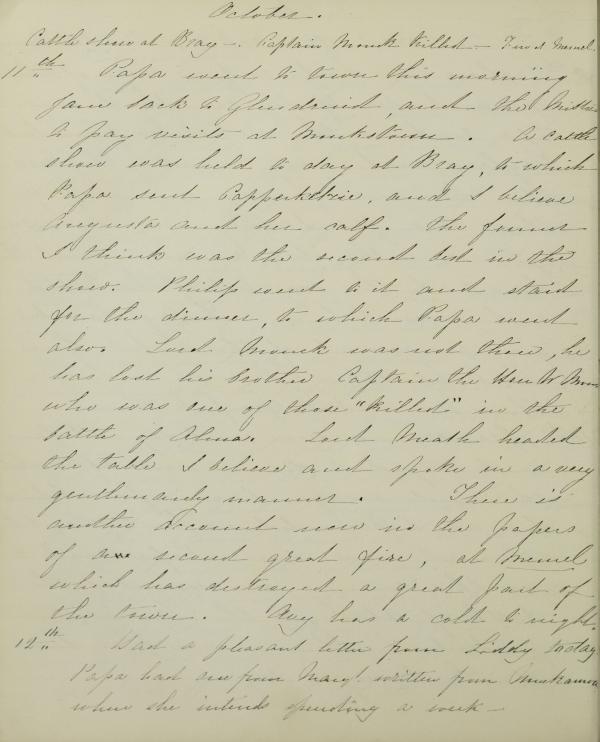 October.
Cattle show at Bray —. Captain Monck Killed — Fire at Memel.
11th Papa went to town this morning
Jane back to Glendruid, and the Misses
to pay visits at Monkstown. A cattle
show was held to day at Bray, to which
Papa sent Copperkettle, and I believe
Augusta and her calf. The former
I think was the second best in the
show. Philip went to it and staid
for the dinner, to which Papa went
also. Lord Monck was not there, he
has lost his brother Captain the Hon W Monck
who was one of those "Killed" in the
battle of Alma. Lord Meath headed
the table I believe and spoke in a very
gentlemanly manner. There is
another account now in the papers
of a second great fire, at Memel
which has destroyed a great part of
the town. Avy has a cold to night.
12th Had a pleasant letter from Liddy to day
Papa had one from Mary. written from
where she intends spending a week —